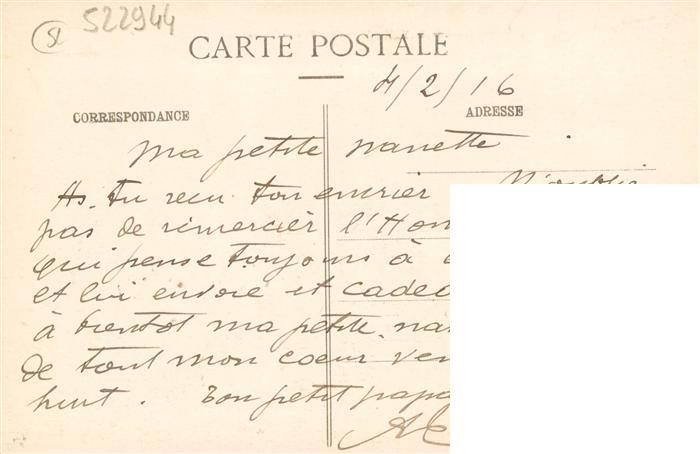 SL 522944
CARTE POSTALE
4/2/16
CORRESPONDANCE
ADRESSE
Ma petite nanette
As-tu recu ton encrier N'oublie
pas de rémercier l'Hom
qui pense toujours à
et lui envoie et cadeu
à bientot ma petite nan
de tout mon coeur
Ton petit papa